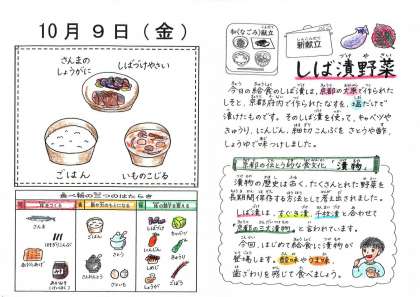 10月9日（金）
さんまの
しょうがに
しばづけやさい
ごはん
いものこじる
食べ物の三つのはたらき
ごはん
和(なごみ)献立
新献立
しば漬野菜
今日の給食のしば漬は、京都の大原で作られた
しそと、京都府内で作られたなすを、塩だけで
漬けたものです。そのしば漬を使って、キャベツや
きゅうり、にんじん、細切こんぶをさとうや酢、
しょうゆで味つけしました。
京都の伝とう的な食文化「漬物」
漬物の歴史は古く、たくさんとれた野菜を
長期間保存する方法として考え出されました。
しば漬は、すぐき漬、千枚漬と合わせて
「京都の三大漬物」と言われています。
今回、はじめて給食に漬物が
登場します。酸味やうま味、
歯ざわりを感じて食べましょう。